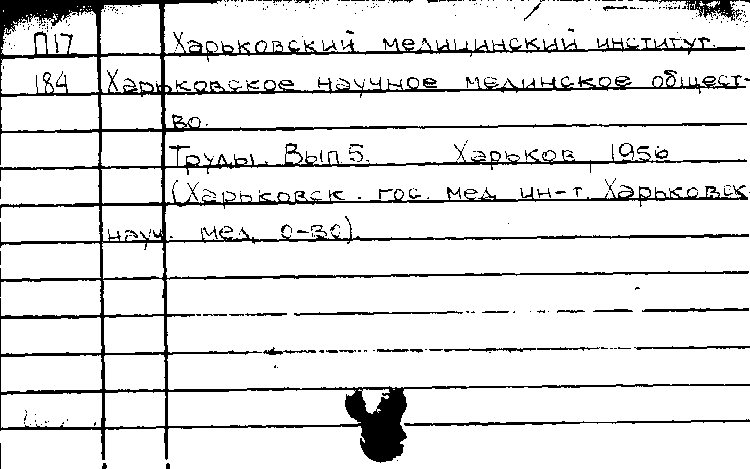 П17 Харьковский медицинский институт.
184 Харьковское научное мединское общест-
во.
Труды. Вып 5. Харьков, 1956
(Харьковск. гос. мед. ин-т. Харьковск
науч. мед. о-во).